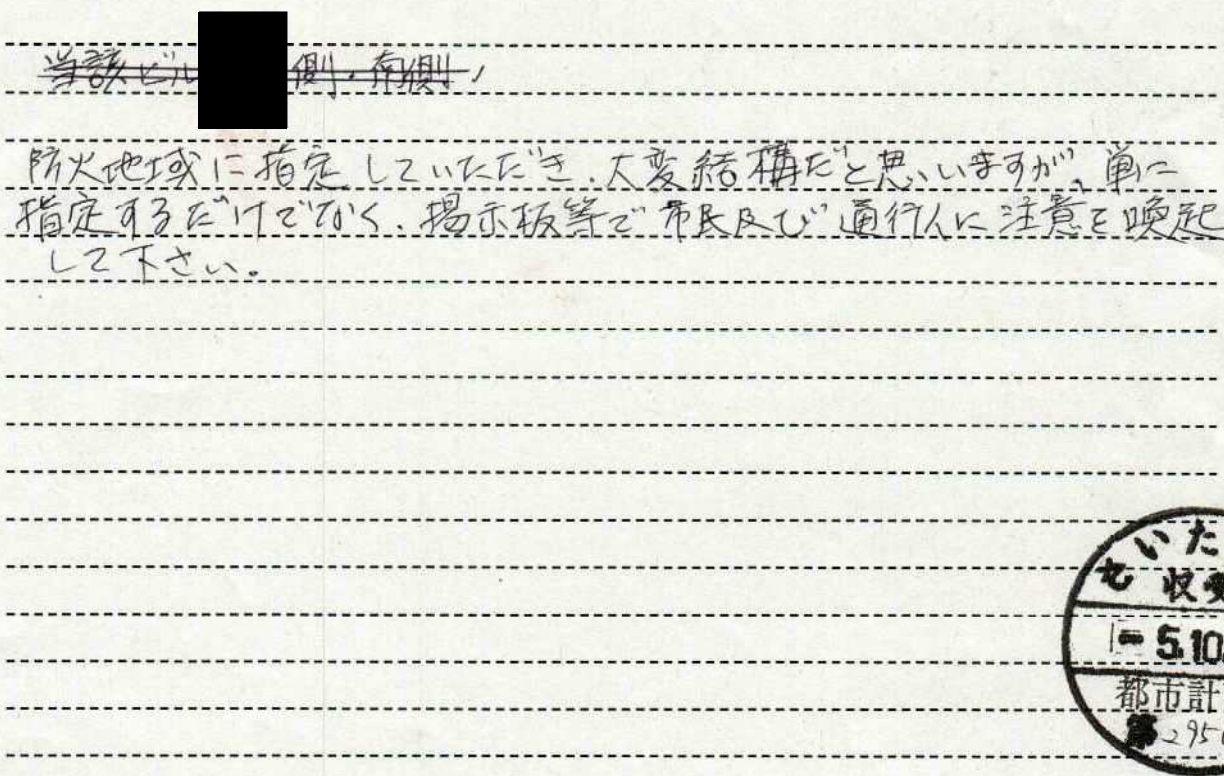 当該ビル 側・南側、
防火地域に指定していただき、大変結構だと思いますが、単に
指定するだけでなく、掲示板等で市民及び通行人に注意を喚起
して下さい。
さいた
収受
5.10.
都市計
第295